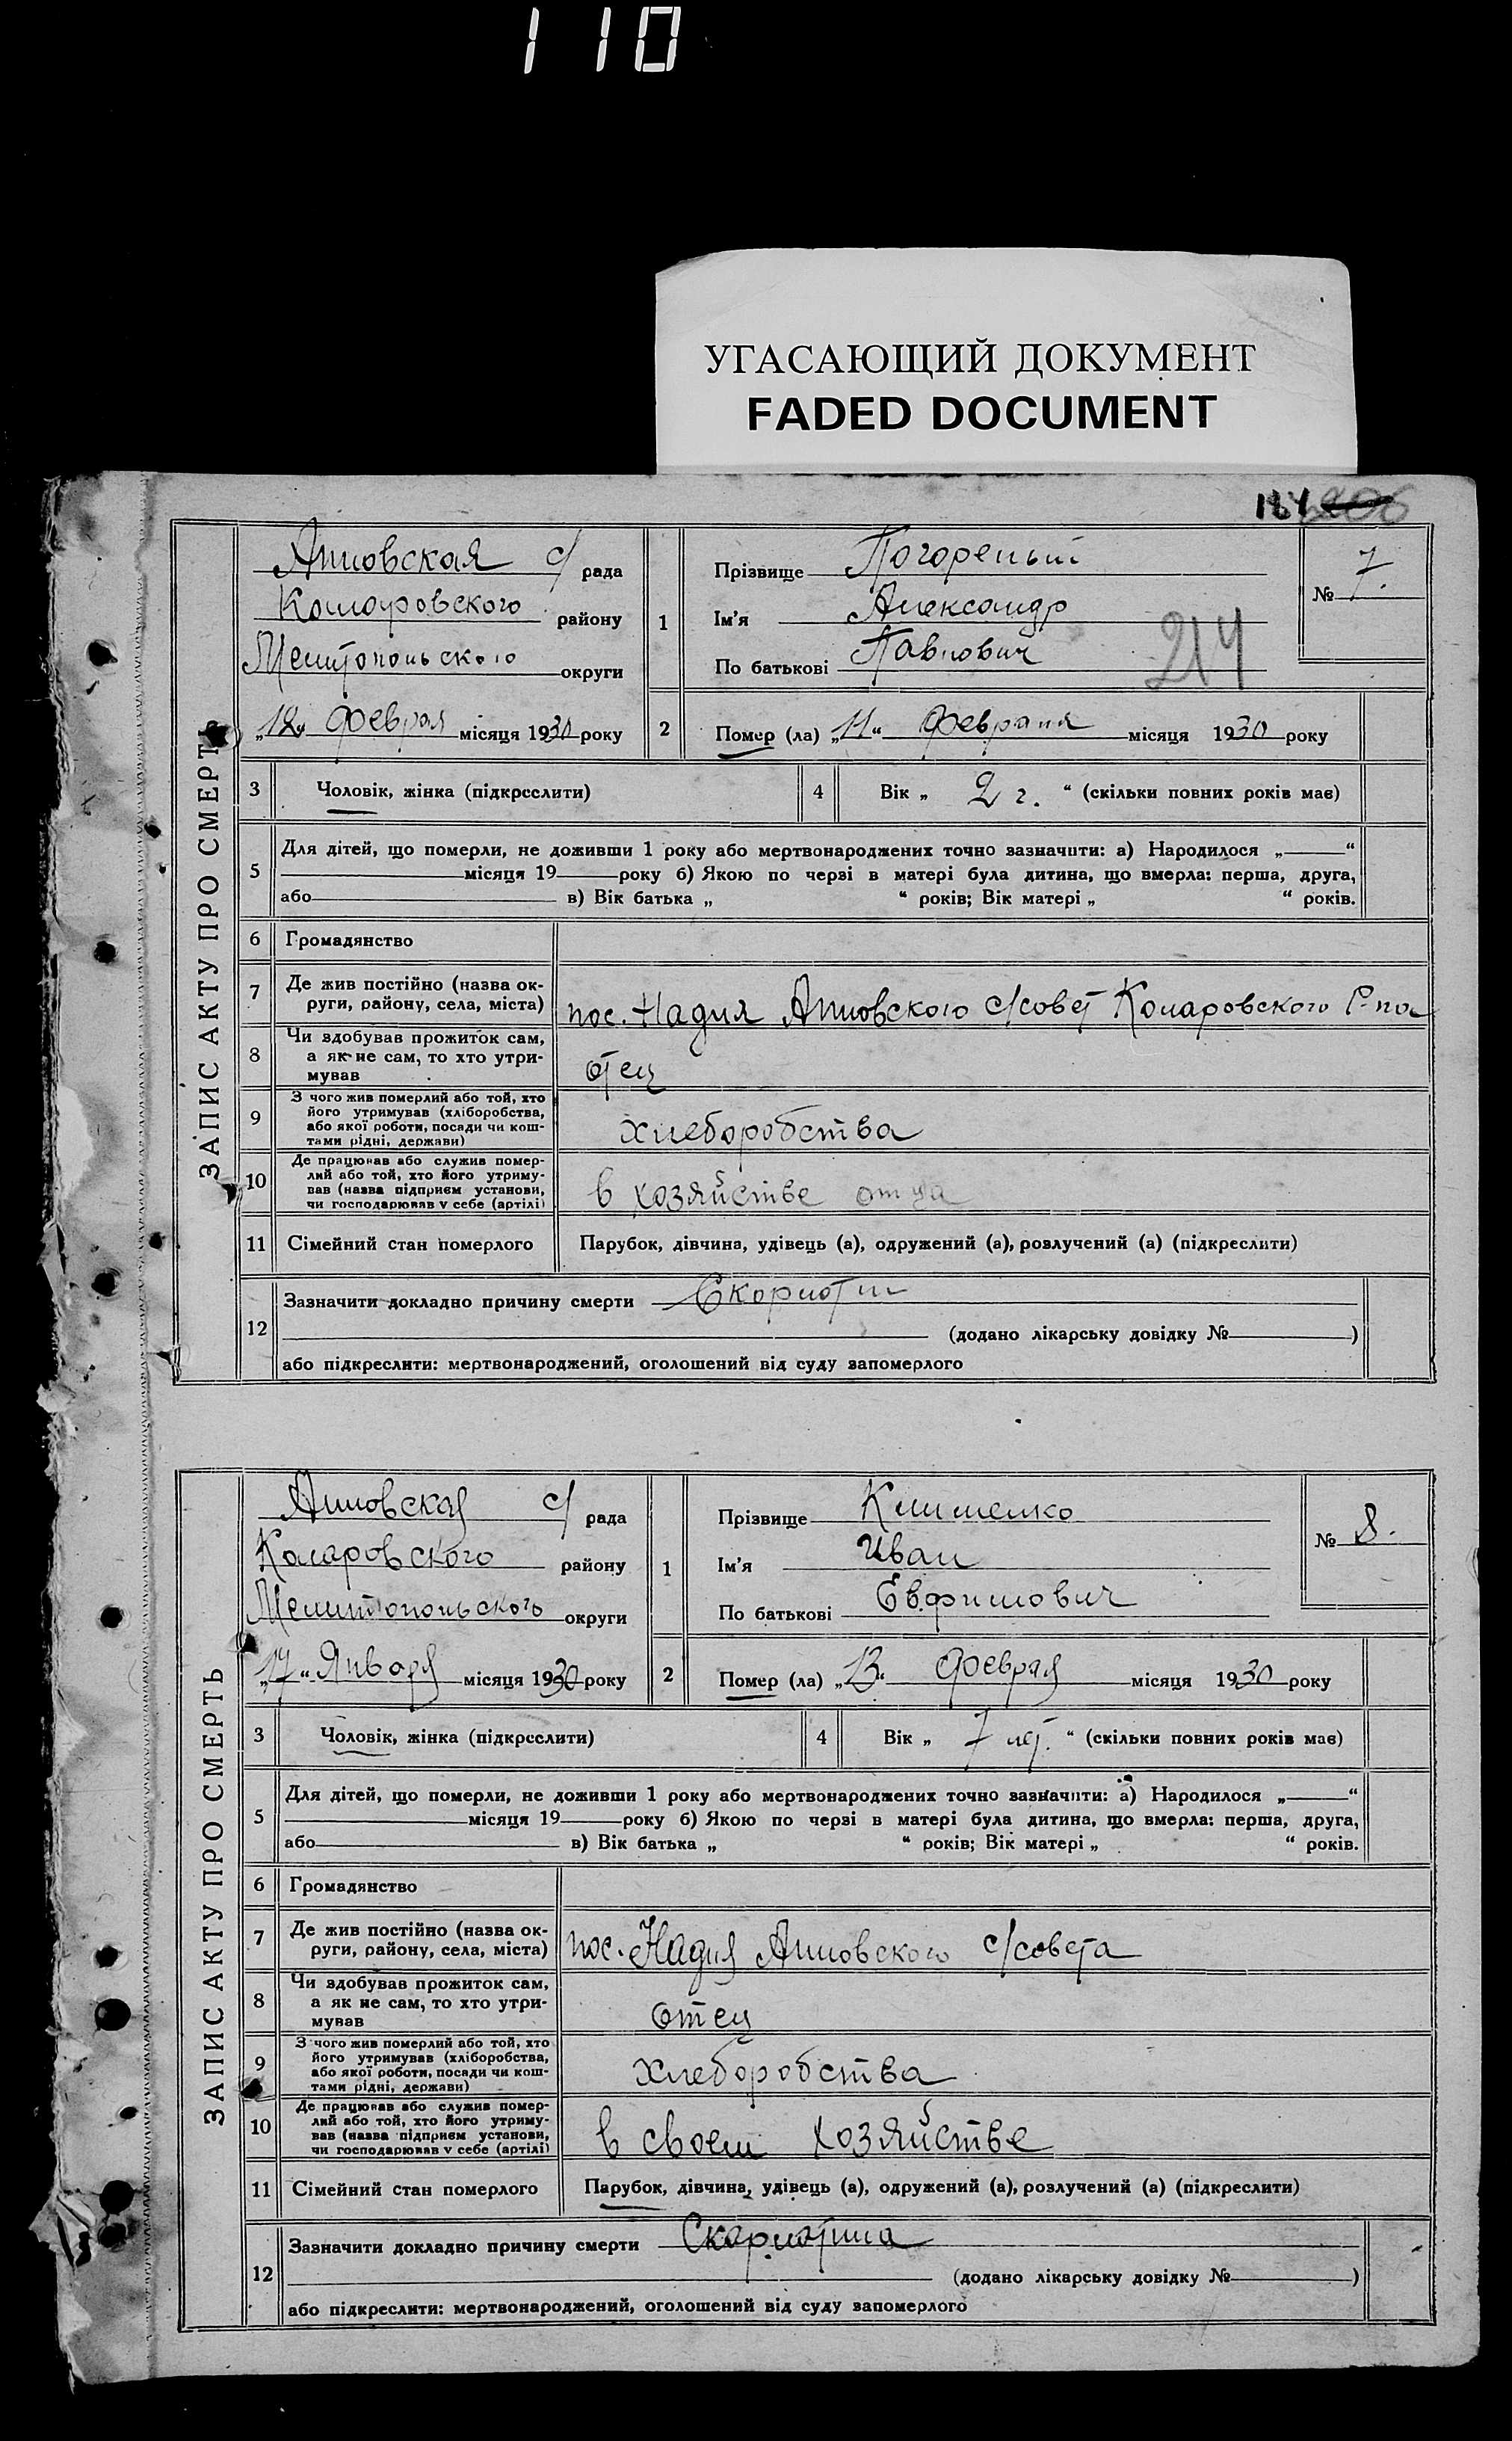 110
УГАСАЮЩИЙ ДОКУМЕНТ
FADED DOCUMENT
ЗАПИС АКТУ ПРО СМЕРТЬ
с/ рада
Коларовского району
Мелитопольского округи
„12“ Феврал місяця 1930 року
1
Прізвище Погорелый
Ім'я Александр
По батькові Павлович
214
№ 7.
2 Помер (ла) „11“ Февраля місяця 1930 року
3 Чоловік, жінка (підкреслити)
4 Вік „ 2 г. “ (скільки повних років має)
5 Для дітей, що померли, не доживши 1 року або мертвонароджених точно зазначити: а) Народилося „ “
місяця 19 року б) Якою по черзі в матері була дитина, що вмерла: перша, друга,
або в) Вік батька „ “ років; Вік матері „ “ років.
6 Громадянство
7 Де жив постійно (назва ок-
руги, району, села, міста)
пос. Надия с/совет Коларовского Р-на
8 Чи здобував прожиток сам,
а як не сам, то хто утри-
мував
отец
9 З чого жив померлий або той, хто
його утримував (хліборобства,
або якої роботи, посади чи кош-
тами рідні, держави)
хлеборобства
10 Де працював або служив помер-
лий або той, хто його утриму-
вав (назва підприєм установи,
чи господарював у себе (артілі)
в хозяйстве отца
11 Сімейний стан померлого
Парубок, дівчина, удівець (а), одружений (а), розлучений (а) (підкреслити)
12 Зазначити докладно причину смерти Скорлотин
(додано лікарську довідку № )
або підкреслити: мертвонароджений, оголошений від суду запомерлого
ЗАПИС АКТУ ПРО СМЕРТЬ
с/ рада
Коларовского району
Мелитопольского округи
„17“ Января місяця 1930 року
1
Прізвище Клименко
Ім'я Иван
По батькові Евфимович
№ 8.
2 Помер (ла) „13“ Феврая місяця 1930 року
3 Чоловік, жінка (підкреслити)
4 Вік „ 7 лет. “ (скільки повних років має)
5 Для дітей, що померли, не доживши 1 року або мертвонароджених точно зазначити: а) Народилося „ “
місяця 19 року б) Якою по черзі в матері була дитина, що вмерла: перша, друга,
або в) Вік батька „ “ років; Вік матері „ “ років.
6 Громадянство
7 Де жив постійно (назва ок-
руги, району, села, міста)
пос. Надия с/совета
8 Чи здобував прожиток сам,
а як не сам, то хто утри-
мував
отец
9 З чого жив померлий або той, хто
його утримував (хліборобства,
або якої роботи, посади чи кош-
тами рідні, держави)
хлеборобства
10 Де працював або служив помер-
лий або той, хто його утриму-
вав (назва підприєм установи,
чи господарював у себе (артілі)
в своем хозяйстве
11 Сімейний стан померлого
Парубок, дівчина, удівець (а), одружений (а), розлучений (а) (підкреслити)
12 Зазначити докладно причину смерти Скарлатина
(додано лікарську довідку № )
або підкреслити: мертвонароджений, оголошений від суду запомерлого